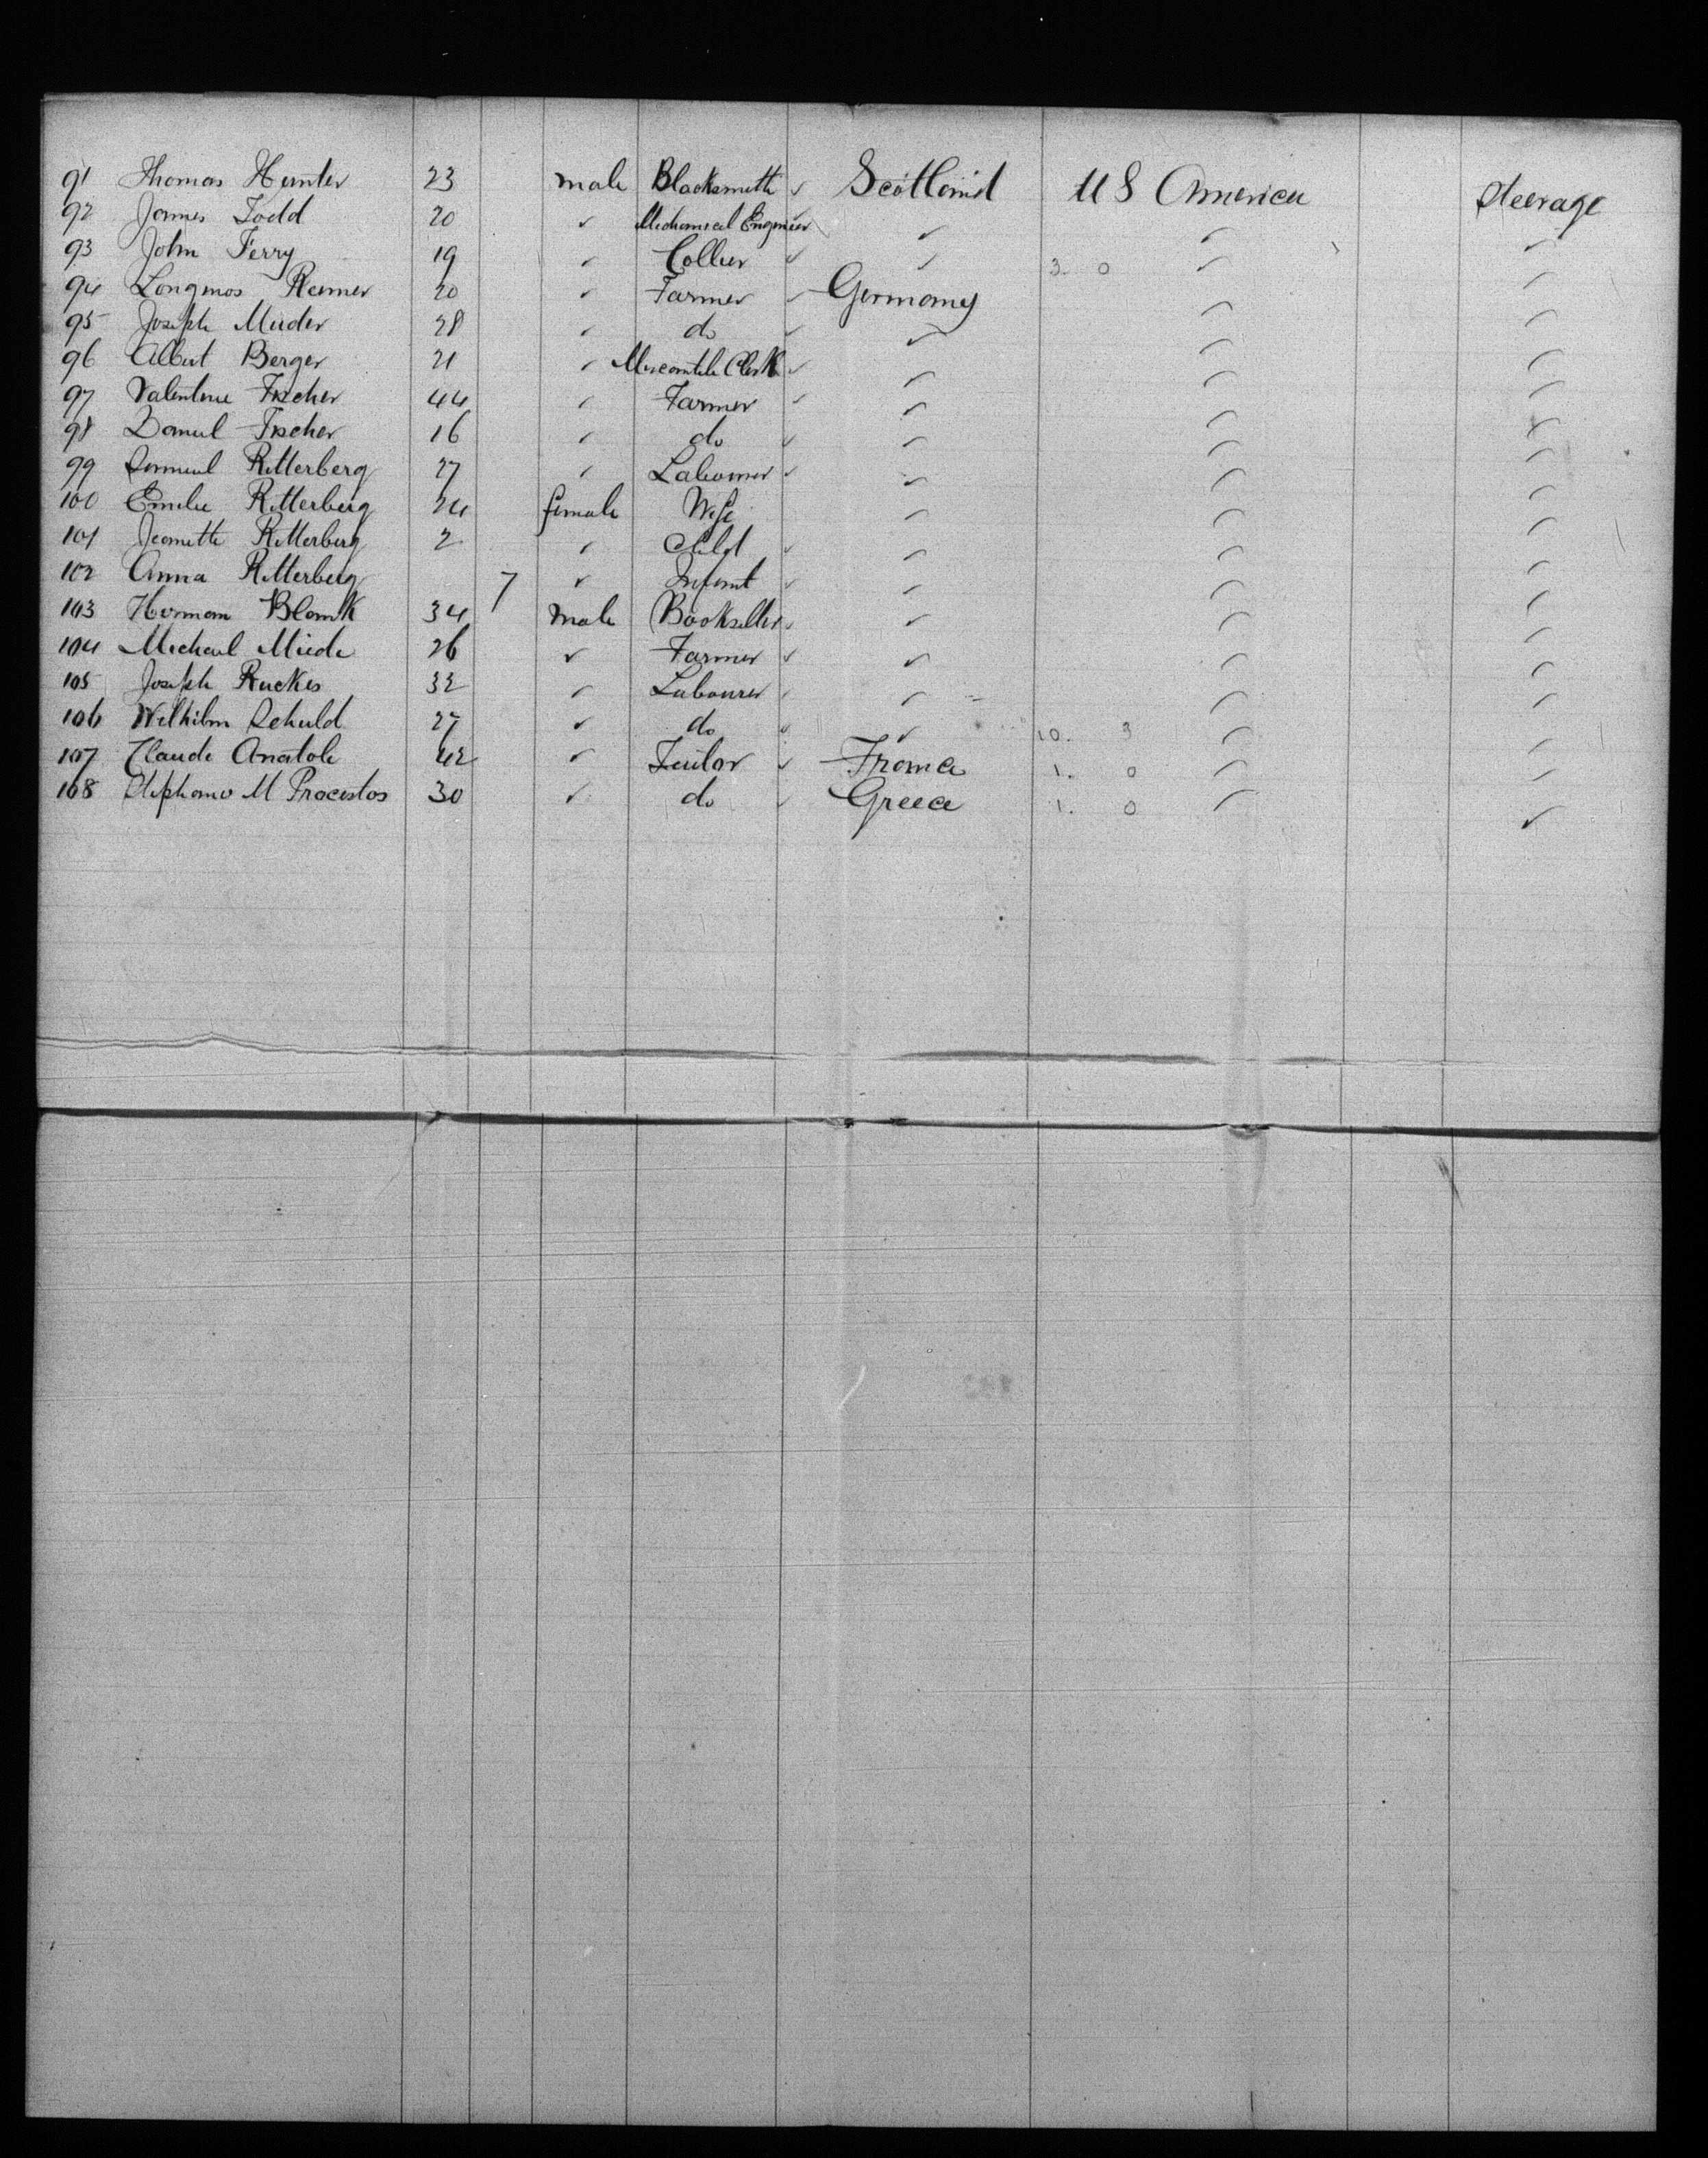 91 Thomas Hunter 23 male Blacksmith ✓ Scotland U S America Steerage
92 James Todd 20 ✓ Mechanical Engineer ✓ ✓ ✓ ✓
93 John Ferry 19 ✓ Collier ✓ ✓ 3. 0 ✓ ✓
94 Longinos Reimer 20 ✓ Farmer ✓ Germany ✓ ✓
95 Joseph Muder 28 ✓ do ✓ ✓ ✓ ✓
96 Albert Berger 21 ✓ Mercantile Clerk ✓ ✓ ✓ ✓
97 Valentine Fischer 44 ✓ Farmer ✓ ✓ ✓ ✓
98 Daniel Fischer 16 ✓ do ✓ ✓ ✓ ✓
99 Samuel Ritterberg 27 ✓ Labourer ✓ ✓ ✓ ✓
100 Emilie Ritterberg 24 female Wife ✓ ✓ ✓
101 Jeanette Ritterberg 2 ✓ Child ✓ ✓ ✓ ✓
102 Anna Ritterberg 7 ✓ Infant ✓ ✓ ✓ ✓
103 Herman Blank 34 male Bookseller ✓ ✓ ✓ ✓
104 Michael Miede 26 ✓ Farmer ✓ ✓ ✓ ✓
105 Joseph Ruckes 32 ✓ Labourer ✓ ✓ ✓ ✓
106 Wilhilm Schuld 27 ✓ do ✓ ✓ 10. 3 ✓ ✓
107 Claude Anatole 42 ✓ Tailor ✓ France 1. 0 ✓ ✓
108 M Procestos 30 ✓ do ✓ Greece 1. 0 ✓ ✓